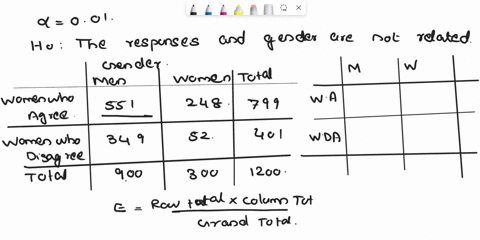 α = 0.01.
Ho: The responses and gender are not related.
Gender.
Men Women Total
Women who Agree 551 248. 799
Women who Disagree 349 52. 401
Total 900 300 1200.
M W
W.A
WDA
E = Row total × Column Tot
Grand Total.